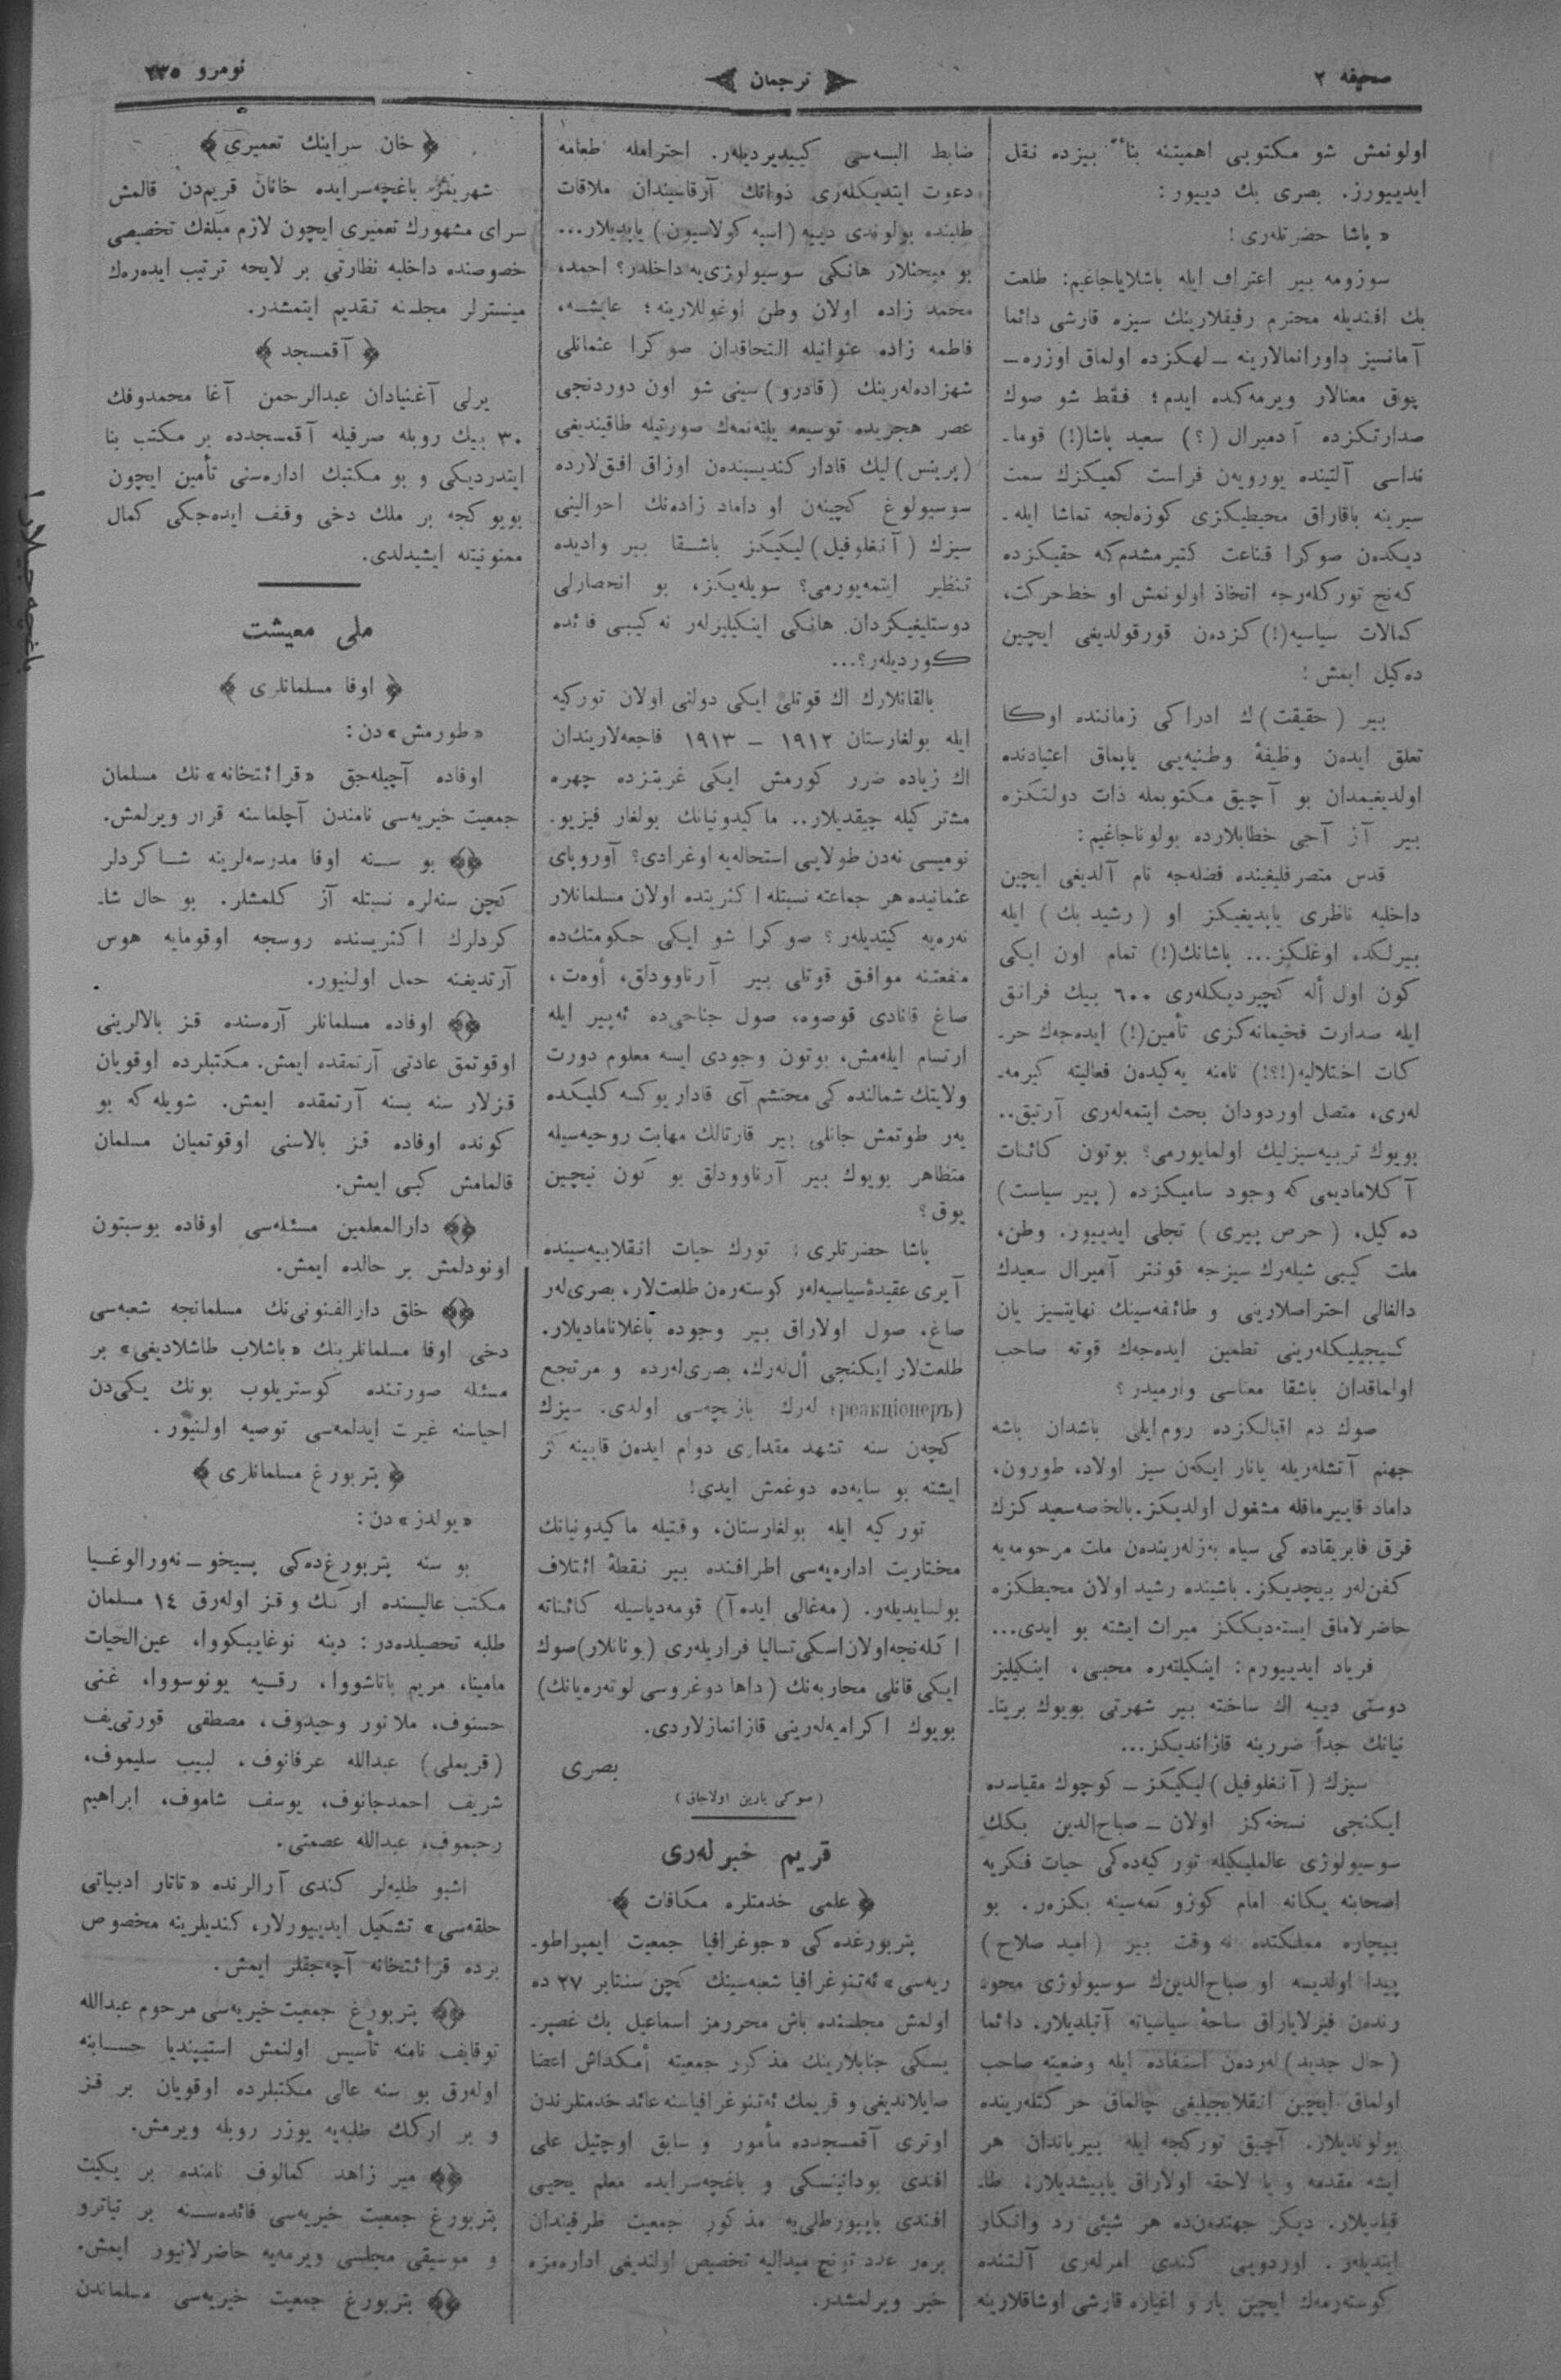 صحیفه ٢
ترجمان
نومرو ٢٣٥
اولونمش شو مكتوبی اهمیتنه بناءً بیزده نقل
ایدییورز. بصری بك دییور:
« پاشا حضرتلەری!
سوزومه بیر اعتراف ایله باشلایاجاغیم: طلعت
بك افندیله محترم رفیقلارینك سیزه قارشی دائما
آمانسیز داورانمالارینه ــ لهكزده اولماق اوزره ــ
پوق معنالار ویرمەكده ایدم؛ فقط شو صوك
صدارتكزده آدمیرال (؟) سعید پاشا(!) قوما۔
نداسی آلتینده یورویەن فراست كمیكزك سمت
سیرینه باقاراق محیطیكزی كوزەلجه تماشا ایله۔
دیكدەن صوكرا قناعت كتیرمشدم كه حقیكزده
كەنج توركلەرجه اتخاذ اولونمش او خط حركت،
كمالات سیاسیه(!) كزدەن قورقولدیغی ایچین
دەكیل ایمش!
بیر (حقیقت)ك ادراكی زماننده اوكا
تعلق ایدەن وظیفهٔ وطنیەیی یاپماق اعتیادنده
اولدیغیمدان بو آچیق مكتوبمله ذات دولتكزه
بیر آز آجی خطابلارده بولوناجاغیم:
قدس متصرفلیغینده فضلەجه نام آلدیغی ایچین
داخلیه ناظری یاپدیغیكز او (رشید بك) ایله
بیرلكده اوغلكز... پاشانك(!) تمام اون ایكی
كون اول أله كچیردیكلەری ٦٠٠ بیك فرانق
ایله صدارت فخیمانەكزی تأمین(!) ایدەجەك حر۔
كات اختلالیه(!؟!) نامنه یەكیدەن فعالیته كیرمە۔
لەری، متصل اوردودان بحث ایتمەلەری آرتیق..
بویوك تربیەسیزلیك اولمایورمی؟ بوتون كائنات
آكلامادیمی كه وجود سامیكزده (پیر سیاست)
دەكیل، (حرص پیری) تجلی ایدییور. وطن،
ملت كیبی شیلەرك سیزجه قونتر آمیرال سعیدك
دالغالی احتراصلارینی و طائفەسینك نهایتسیز یان
كیجیلیكلەرینی تطمین ایدەجەك قوته صاحب
اولماقدان باشقا معناسی وارمیدر؟
صوك دم اقبالكزده روم ایلی باشدان باشه
جهنم آتشلەریله یانار ایكەن سیز اولاد، طورون،
داماد قاییرماقله مشغول اولدیكز. بالخاصه سعید كزك
قرق فابریقاده كی سیاه بەزلەریندەن ملت مرحومەیه
كفن لەر بیچدیكز. باشینده رشید اولان محیطكزه
حاضرلاماق ایستەدیككز میراث ایشته بو ایدی...
فریاد ایدییورم: اینكیلتەره محبی، اینكیلیز
دوستی دییه اك ساخته بیر شهرتی بویوك بریتا۔
نیانك جداً ضررینه قازاندیكز...
سیزك (آنغلوفیل) لیكیكز ــ كوچوك مقیاسده
ایكنجی نسخەكز اولان ــ صباح الدین بكك
سوسیولوژی عالملیكیله توركیەدەكی حیات فكریه
اصحابنه یكانه امام كوزوكمەسینه بكزەر. بو
بیچاره مملكتده نه وقت بیر (امید صلاح)
پیدا اولدیسه او صباح الدین ك سوسیولوژی محو۔
رندەن فیرلایاراق ساحهٔ سیاسیاته آتیلدیلار. دائما
(حال جدید) لەردەن استفاده ایله وضعیته صاحب
اولماق ایچین انقلابجیلیغی چالماق حركتلەرینده
بولوندیلار. آچیق توركجه ایله بیریاندان هر
ایشه مقدمه و یا لاحقه اولاراق یاپیشدیلار، طا۔
قیلدیلار. دیكر جهتدەن ده هر شیئی رد و انكار
ایتدیلەر. اوردویی كندی امرلەری آلتنده
كوستەرمەك ایچین یار و اغیاره قارشی اوشاقلارینه
ضابط البسەسی كییدیردیلەر. احترامله طعامه
دعوت ایتدیكلەری ذواتك آرقاسیندان ملاقات
طلبنده بولوندی دییه (اسپه كولاسیون) یاپدیلار...
بو مبحثلار هانكی سوسیولوژی یه داخلدر؟ احمد،
محمد زاده اولان وطن اوغوللارینه؛ عایشه،
فاطمه زاده عنوانیله التحاقدان صوكرا عثمانلی
شهزادەلەرینك (قادرو) سینی شو اون دوردنجی
عصر هجریده توسیعه یلتەنمەك صورتیله طاقیندیغی
(پرینس) لیك قادار كندیسیندەن اوزاق افقلارده
سوسیولوغ كچینەن او داماد زادەنك احوالینی
سیزك (آنغلوفیل) لیكیكز باشقا بیر وادیده
تنظیر ایتمەیورمی؟ سویلەیكز، بو انحصارلی
دوستلیغیكزدان هانكی اینكیلیزلەر نه كیبی فائده
كوردیلەر؟...
بالقانلارك اك قوتلی ایكی دولتی اولان توركیه
ایله بولغارستان ١٩١٢ – ١٩١٣ فاجعەلاریندان
اك زیاده ضرر كورمش ایكی غربتزده چهره
مشتركیله چیقدیلار.. ماكیدونیانك بولغار فیزیو۔
نومیسی نەدن طولایی استحالەیه اوغرادی؟ آوروپای
عثمانیده هر جماعته نسبتله اكثریتده اولان مسلمانلار
نەرەیه كیتدیلەر؟ صوكرا شو ایكی حكومتك ده
منفعتنه موافق قوتلی بیر آرناوودلق، أوەت،
صاغ قانادی قوصوه، صول جناحی ده ئەپیر ایله
ارتسام ایلەمش، بوتون وجودی ایسه معلوم دورت
ولایتك شمالنده كی محتشم آی قادار یوكسەكلیكده
یەر طوتمش جانلی بیر قارتالك مهابت روحیەسیله
متظاهر بویوك بیر آرناوودلق بو كون نیچین
یوق؟
پاشا حضرتلری! تورك حیات انقلابیەسینده
آیری عقیدهٔ سیاسیەلەر كوستەرەن طلعتلار، بصری لەر
صاغ، صول اولاراق بیر وجوده باغلانامادیلار.
طلعتلار ایكنجی أل لەرك، بصری لەرده و مرتجع
(реакціонеръ) لەرك بازیچەسی اولدی. سیزك
كچەن سنه تشهد مقداری دوام ایدەن قابینەكز
ایشته بو سایەده دوغمش ایدی!
توركیه ایله بولغارستان، وقتیله ماكیدونیانك
مختاریت ادارەیەسی اطرافنده بیر نقطهٔ ائتلاف
بولسایدیلەر. (مەغالی ایدەآ) قومەدیاسیله كائناته
اكلەنجه اولان اسكی تسالیا فراریلەری (یونانلار) صوك
ایكی قانلی محاربەنك (داها دوغروسی لوتەرەیانك)
بویوك اكرامیەلەرینی قازانمازلاردی.
بصری
(صوكی یارین اولاجاق)
قریم خبرلەری
﴿ علمی خدمتلره مكافات ﴾
پتربورغده كی «جوغرافیا جمعیت ایمپراطو۔
ریەسی» ئەتنوغرافیا شعبەسینك كچن سنتابر ٢٧ ده
اولمش مجلسنده باش محررمز اسماعیل بك غصپر۔
ینسكی جنابلارینك مذكور جمعیته أمكداش اعضا
صایلاندیغی و قریمك ئەتنوغرافیاسنه عائد خدمتلرندن
اوتری آقمسجدده مأمور و سابق اوچتیل علی
افندی بودانینسكی و باغچەسرایده معلم یحیی
افندی بایبورطلی یه مذكور جمعیت طرفیندان
بررەر عدد تونچ میدالیه تخصیص اولندیغی ادارەمزه
خبر ویرلمشدر.
﴿ خان سراینك تعمیری ﴾
شهریمز باغچەسرایده خانان قریم دن قالمش
سرای مشهورك تعمیری ایچون لازم مبلغك تخصیصی
خصوصنده داخلیه نظارتی بر لایحه ترتیب ایدەرەك
مینسترلر مجلسنه تقدیم ایتمشدر.
﴿ آقمسجد ﴾
یرلی آغنیادان عبدالرحمن آغا محمدوفك
٣٠ بیك روبله صرفیله آقمسجدده بر مكتب بنا
ایتدردیكی و بو مكتبك ادارەسنی تأمین ایچون
بویوكجه بر ملك دخی وقف ایدەجكی كمال
ممنونیتله ایشیدلدی.
ملی معیشت
﴿ اوفا مسلمانلری ﴾
«طورمش» دن:
اوفاده آچیلەجق «قرائتخانه» نك مسلمان
جمعیت خیریەسی نامندن آچلماسنه قرار ویرلمش.
﴿﴾ بو سنه اوفا مدرسەلرینه شاكردلر
كچن سنەلره نسبتله آز كلمشلر. بو حال شا۔
كردلرك اكثریسنده روسجه اوقومایه هوس
آرتدیغنه حمل اولنیور.
﴿﴾ اوفاده مسلمانلر آرەسنده قز بالالرینی
اوقوتمق عادتی آرتمقده ایمش. مكتبلرده اوقویان
قزلار سنه بسنه آرتمقده ایمش. شویله كه بو
كونده اوفاده قز بالاسنی اوقوتمیان مسلمان
قالمامش كبی ایمش.
﴿﴾ دارالمعلمین مسئلەسی اوفاده بوسبتون
اونودلمش بر حالده ایمش.
﴿﴾ خلق دارالفنونی نك مسلمانجه شعبەسی
دخی اوفا مسلمانلرینك «باشلاب طاشلادیغی» بر
مسئله صورتنده كوستریلوب بونك یكی دن
احیاسنه غیرت ایدلمەسی توصیه اولنیور.
﴿ پتربورغ مسلمانلری ﴾
«یولدز» دن:
بو سنه پتربورغ دەكی پسیخو ــ نەورالوغیا
مكتب عالیسنده ارك و قز اولەرق ١٤ مسلمان
طلبه تحصیلدەدر: دینه نوغایبكووا، عین الحیات
مامینا، مریم پاتاشووا، رقیه یونوسووا، غنی
حسنوف، ملانور وحیدوف، مصطفی قورتی یف
(قریملی) عبدالله عرفانوف، لبیب سلیموف،
شریف احمدجانوف، یوسف شاموف، ابراهیم
رحیموف، عبدالله عصمتی.
اشبو طلبەلر كندی آرالرنده «تاتار ادبیاتی
حلقەسی» تشكیل ایدییورلار، كندیلرینه مخصوص
برده قرائتخانه آچەجقلر ایمش.
﴿﴾ پتربورغ جمعیت خیریەسی مرحوم عبدالله
توقایف نامنه تأسیس اولنمش استیپندیا حسابنه
اولەرق بو سنه عالی مكتبلرده اوقویان بر قز
و بر اركك طلبەیه یوزر روبله ویرمش.
﴿﴾ میر زاهد كمالوف نامنده بر یكیت
پتربورغ جمعیت خیریەسی فائدەسنه بر تیاترو
و موسیقی مجلسی ویرمەیه حاضرلانیور ایمش.
﴿﴾ پتربورغ جمعیت خیریەسی مسلماندن